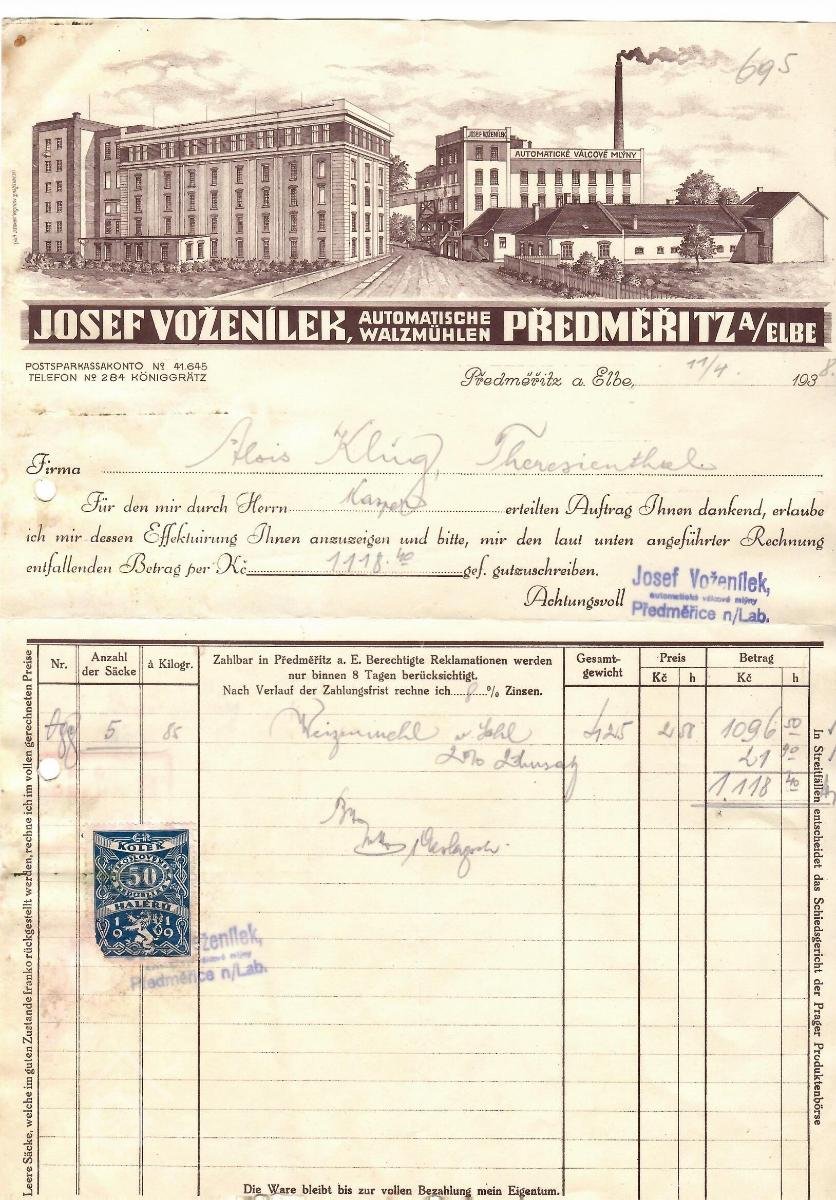 695
JOSEF VOŽENÍLEK
AUTOMATICKÉ VÁLCOVÉ MLÝNY
JOSEF VOŽENÍLEK, AUTOMATISCHE WALZMÜHLEN PŘEDMĚŘITZ A/ELBE
POSTSPARKASSAKONTO Nº 41.645
TELEFON Nº 284 KÖNIGGRÄTZ
Předměřitz a. Elbe, 11/4. 1938.
Firma Alois Klug, Theresienthal
Für den mir durch Herrn erteilten Auftrag Ihnen dankend, erlaube
ich mir dessen Effektuirung Ihnen anzuzeigen und bitte, mir den laut unten angeführter Rechnung
entfallenden Betrag per Kč 1118.40 gef. gutzuschreiben.
Achtungsvoll
Josef Voženílek,
automatické válcové mlýny
Předměřice n/Lab.
Leere Säcke, welche im guten Zustande franko rückgestellt werden, rechne ich im vollen gerechneten Preise
Nr. Anzahl der Säcke à Kilogr.
Zahlbar in Předměřitz a. E. Berechtigte Reklamationen werden
nur binnen 8 Tagen berücksichtigt.
Nach Verlauf der Zahlungsfrist rechne ich 8 % Zinsen.
Gesamt-gewicht Preis Kč h Betrag Kč h
5 85 Weizenmehl 425 2 58 1096 50
2% 21 90
1.118 40
KOLEK
50
HALÉŘŮ
1919
Voženílek,
automatické válcové mlýny
Předměřice n/Lab.
In Streitfällen entscheidet das Schiedsgericht der Prager Produktenbörse
Die Ware bleibt bis zur vollen Bezahlung mein Eigentum.